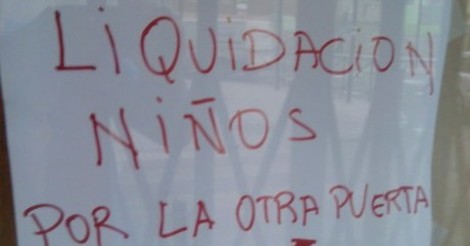 LIQUIDACION
NIÑOS
POR LA OTRA PUERTA